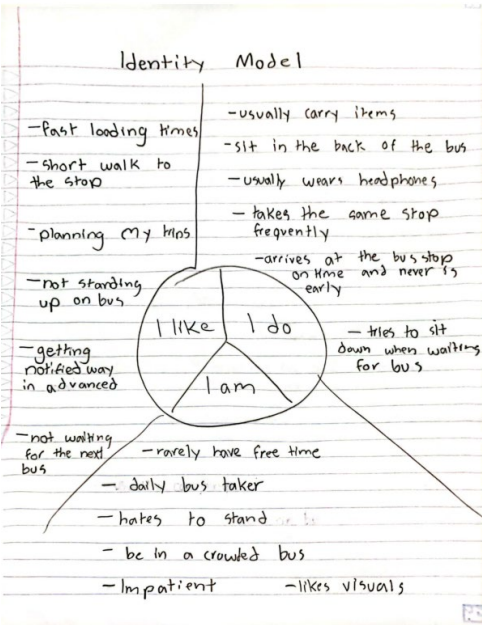 Identity Model
-fast loading times
-short walk to
the stop
-planning my trips
-not standing
up on bus
-getting
notified way
in advanced
-not waiting
for the next
bus
-usually carry items
-sit in the back of the bus
-usually wears headphones
- takes the same stop
frequently
-arrives at the bus stop
on time and never is
early
- tries to sit
down when waiting
for bus
I like
I do
I am
-rarely have free time
- daily bus taker
- hates to stand
- be in a crowded bus
- Impatient
-likes visuals